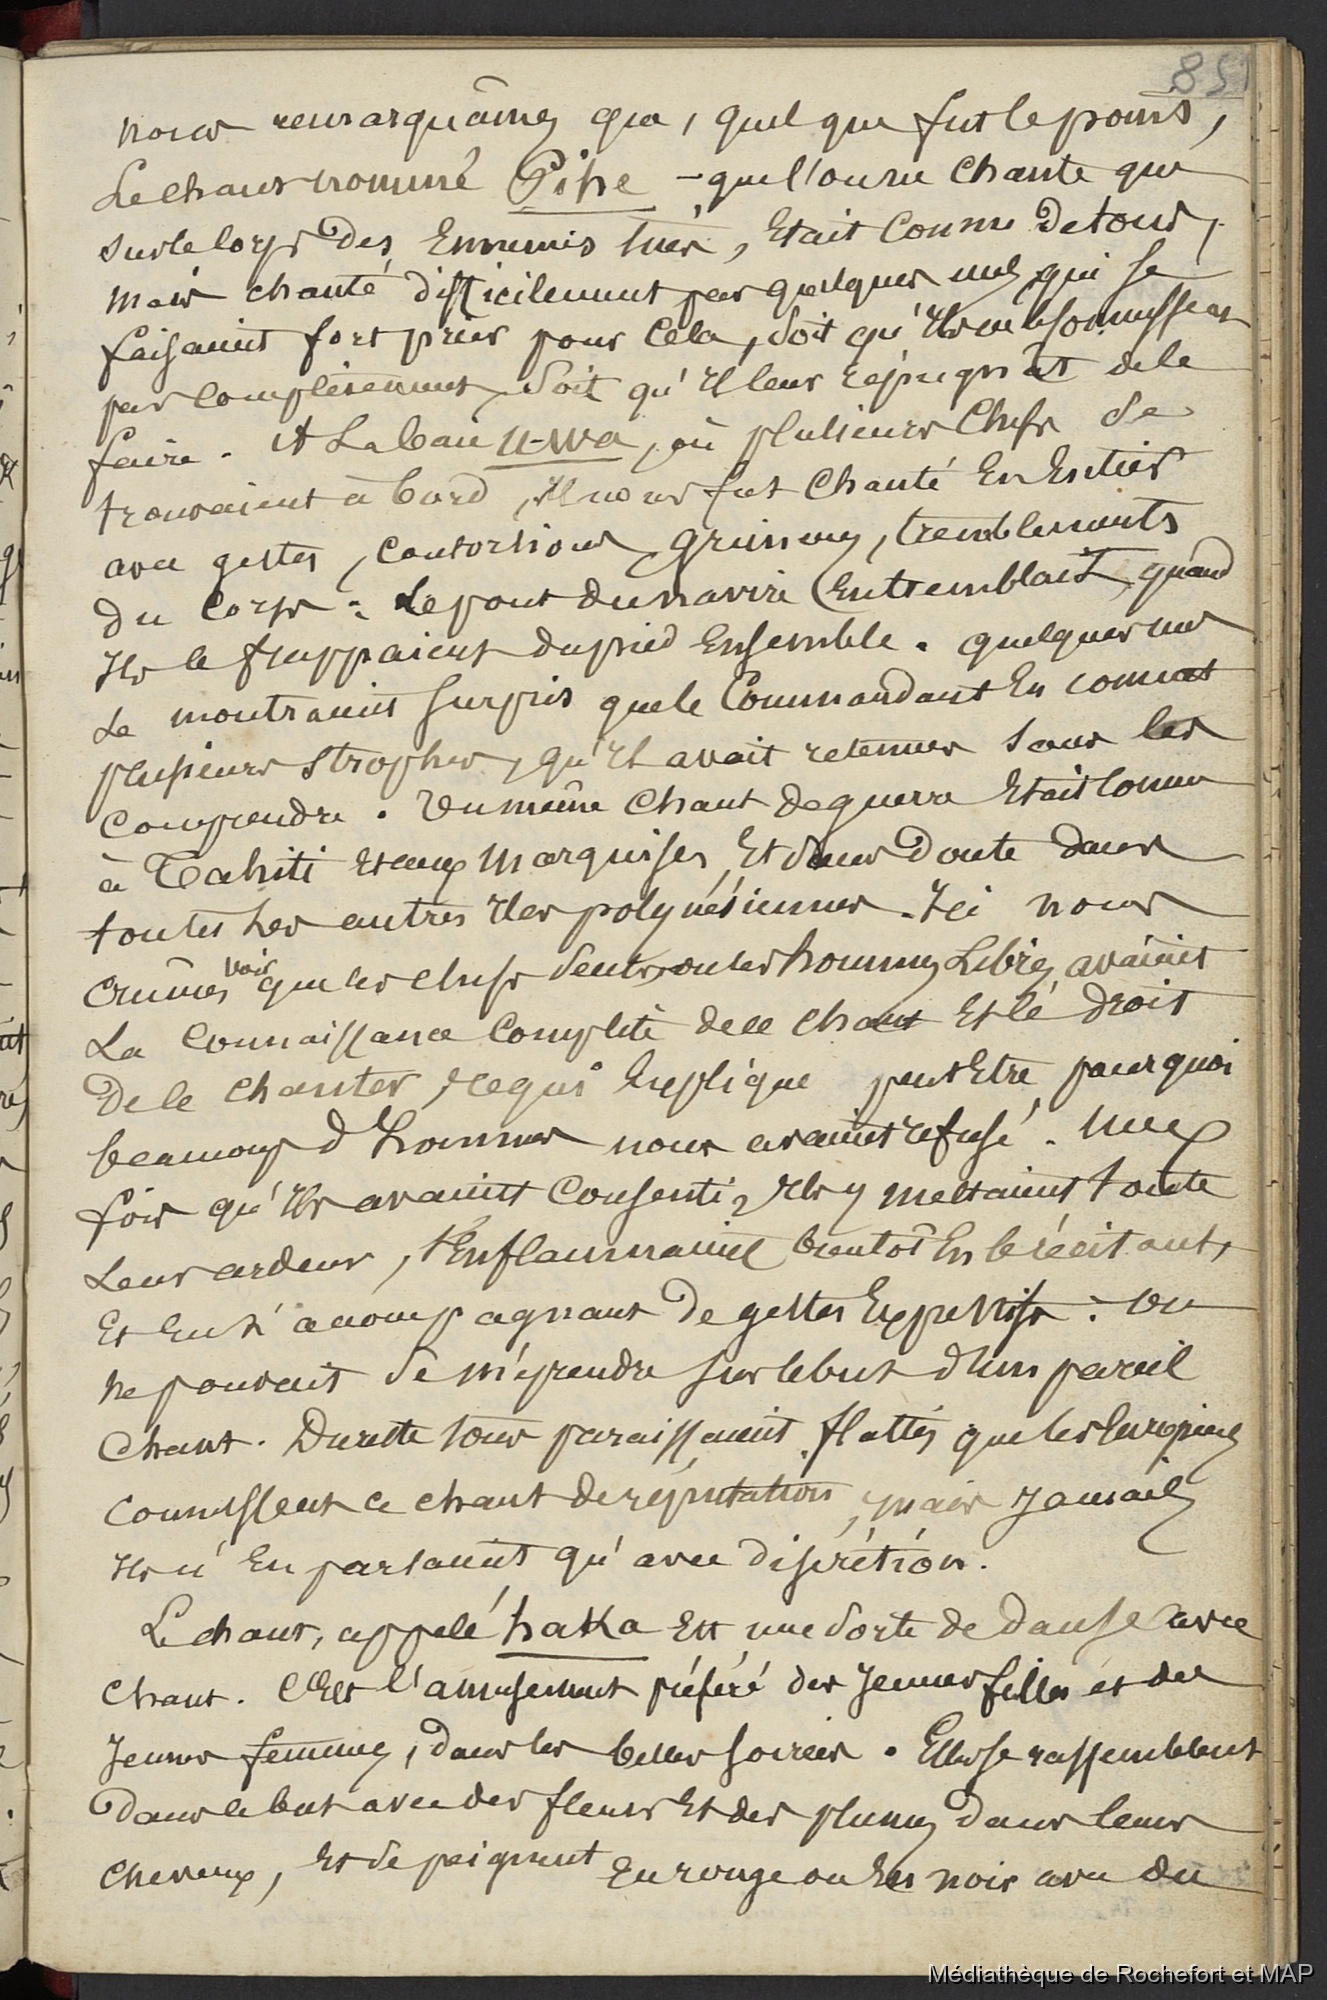 851
nous remarquâmes que, quel que fut le pays,
Le chant nommé Pihe - que l'on ne chante que
sur le corps des Ennemis tués, Etait Connu de tous,
mais chanté difficilement par quelques uns, qui se
faisaient fort prier pour cela, soit qu'ils ne le sonnussent
pas complètement, soit qu'il leur répugnât de le
faire. A La baie U-wa, où plusieurs Chefs se
trouvaient à bord, il nous fut chanté En Entier
avec gestes, contorsions, grimaces, tremblements
du Corps : Le pont du navire Entremblait, quand
ils le frappaient du pied Ensemble. quelques uns
se montraient surpris que le Commandant En connut
plusieurs strophes, qu'il avait retenues sans les
comprendre. Un même chant de guerre Etait connu
à Tahiti et aux Marquises, Et sans doute dans
toutes les autres iles polynésiennes. Ici nous
crûmes voir que les chefs seuls, ou les hommes Libres, avaient
La Connaissance Complète de ce chant Et le droit
De le chanter, ce qui Explique peut Etre pourquoi
beaucoup d'hommes nous avaient refusé. Une
fois qu'ils avaient Consenti, ils y mettaient toute
Leur ardeur, s'Enflammaient bientôt En le récitant,
Et En s'accompagnant de gestes Expressifs : on
ne pouvait se méprendre sur le but d'un pareil
Chant. Du reste tous paraissaient flattés que les Européens
connussent ce chant de réputation, mais jamais
ils n'En parlaient qu'avec discrétion.
Le chant, appelé haka Est une sorte de danse avec
chant. C'Est l'amusement préféré des jeunes filles et des
jeunes femmes, dans les belles soirées. Elles se rassemblent
dans ce but avec des fleurs Et des plumes dans leurs
cheveux, Et se peignent En rouge ou En noir avec du
Médiathèque de Rochefort et MAP